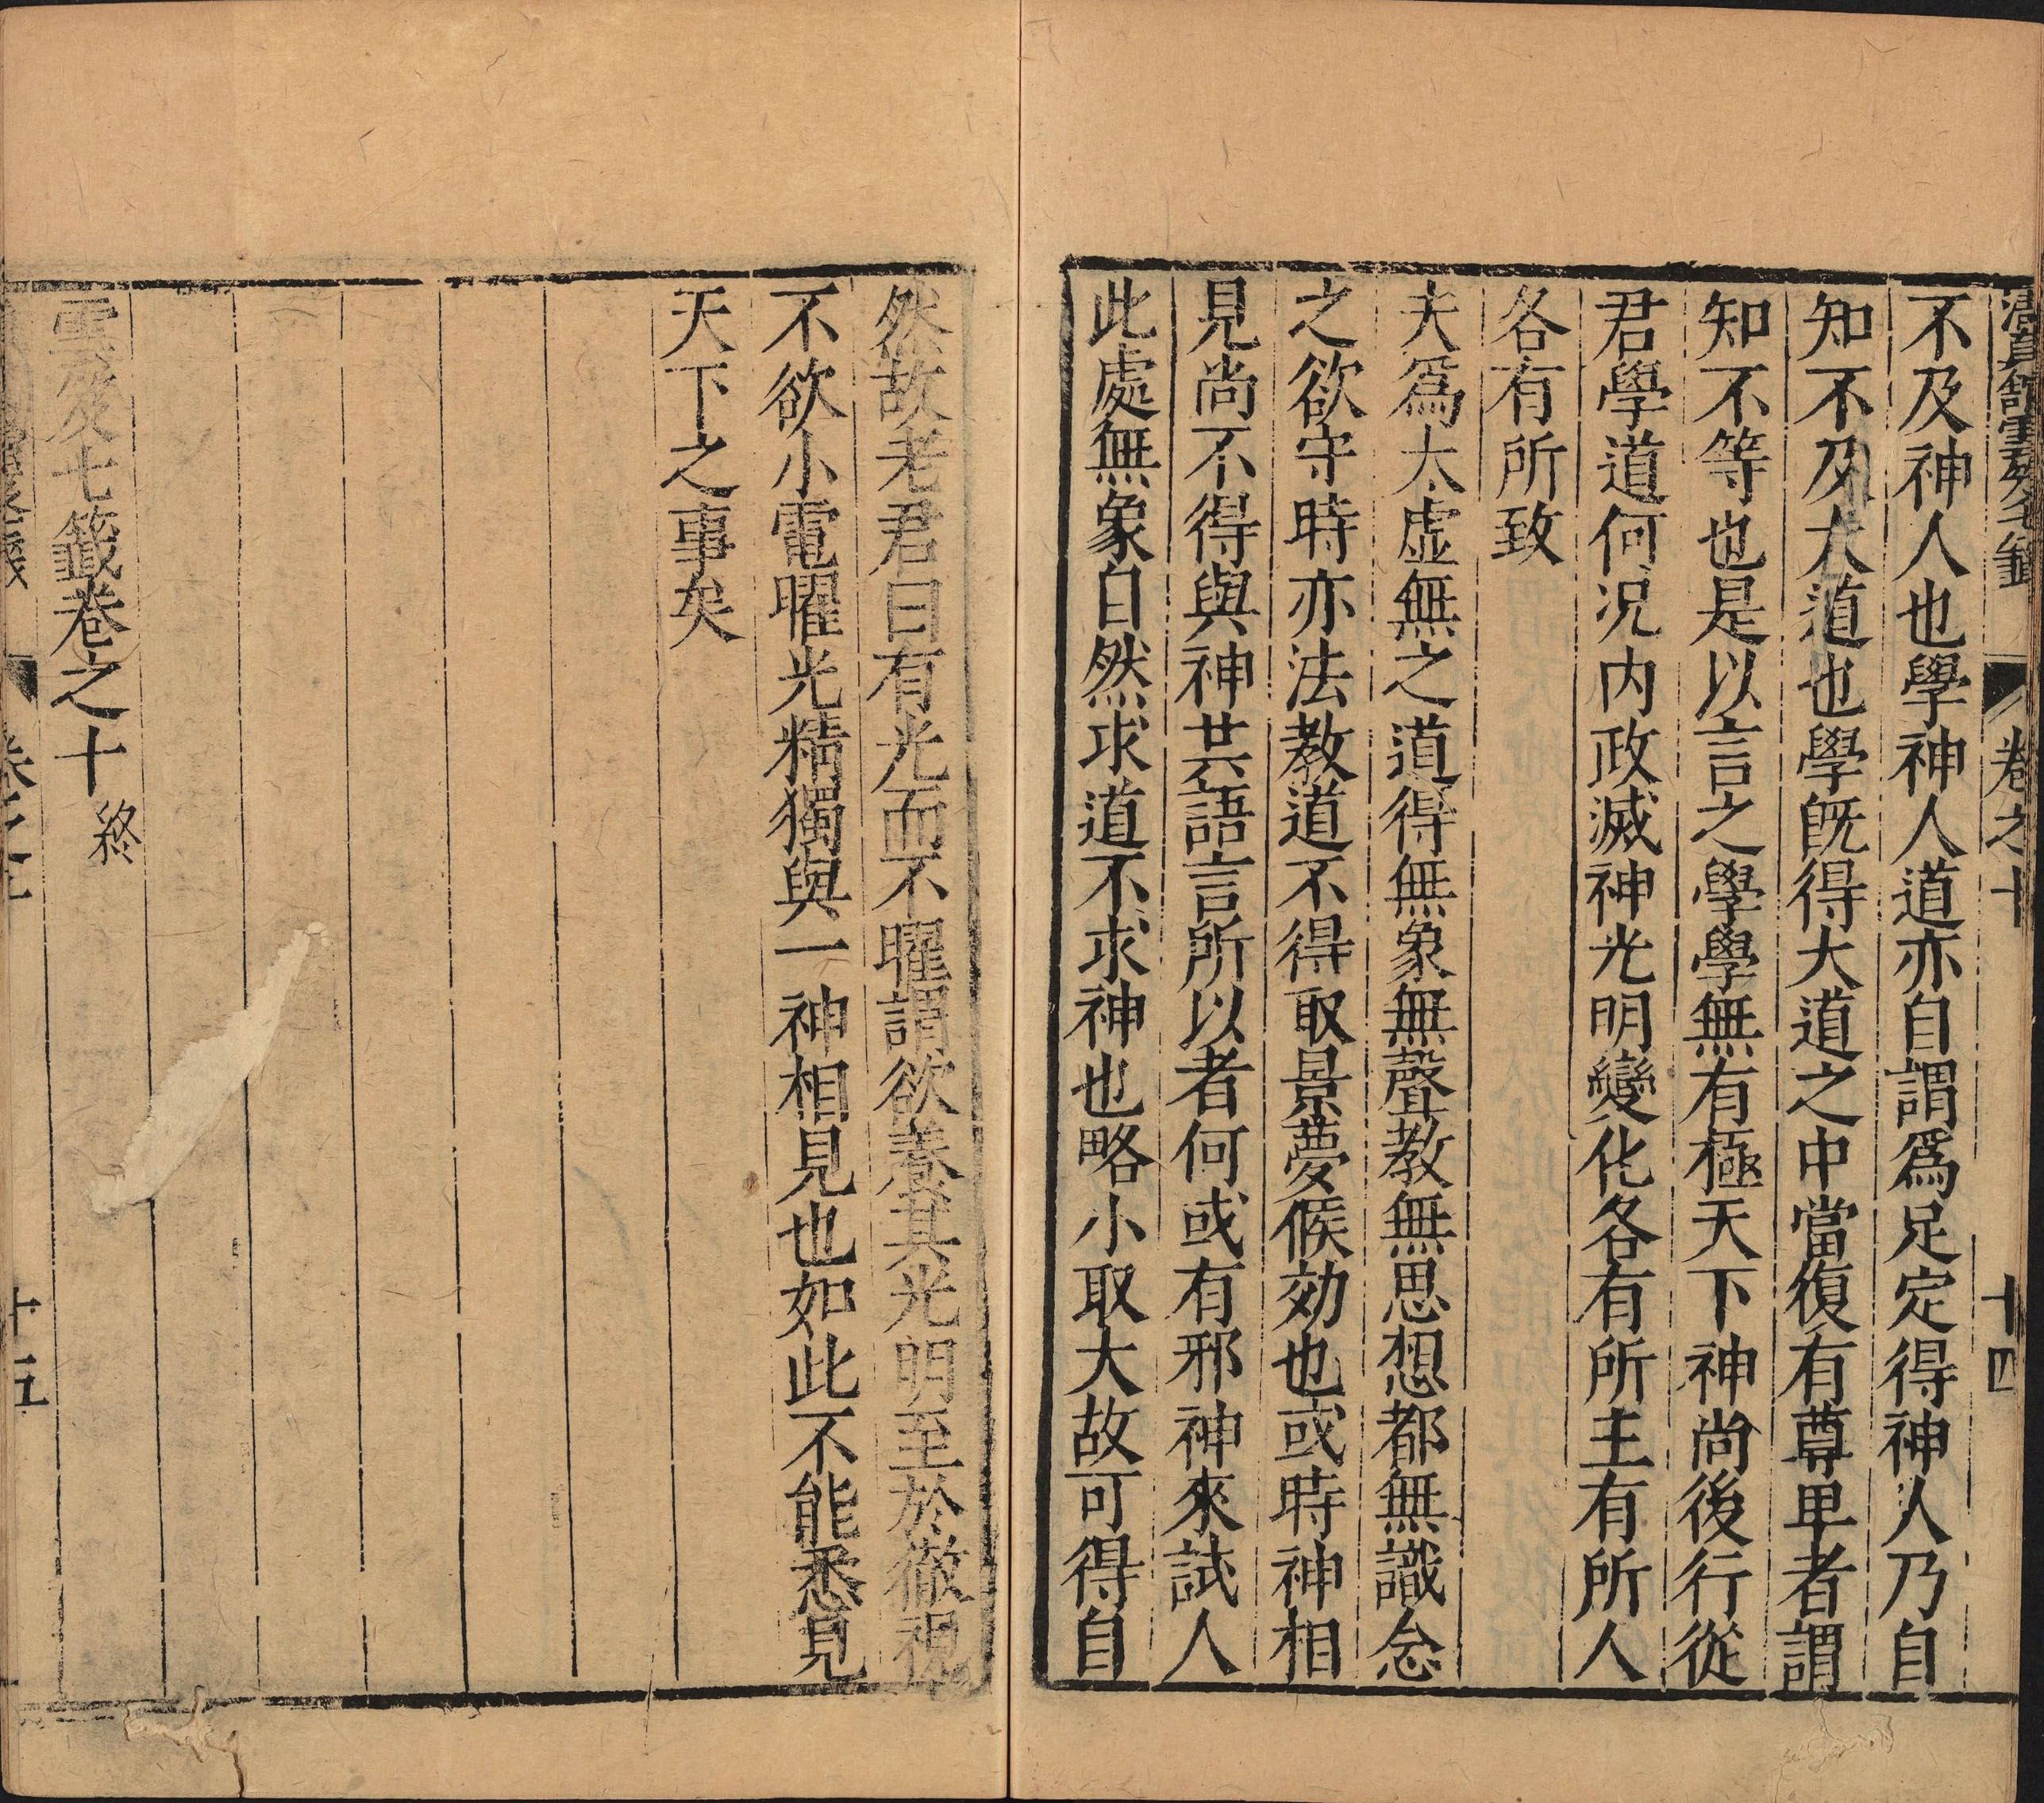 清真館雲笈七籤 卷之十 十四
不及神人也學神人道亦自謂爲足定得神人乃自
知不及大道也學旣得大道之中當復有尊卑者謂
知不等也是以言之學學無有極天下神尚後行從
君學道何况内政滅神光明變化各有所主有所人
各有所致
夫爲太虛無之道得無象無聲教無思想都無識念
之欲守時亦法教道不得取景夢候効也或時神相
見尚不得與神共語言所以者何或有邪神來試人
此處無象自然求道不求神也略小取大故可得自
然故老君曰有光而不曜謂欲養其光明至於徹視
不欲小電曜光精獨與一神相見也如此不能悉見
天下之事矣
雲笈七籤卷之十 終
卷之十 十五